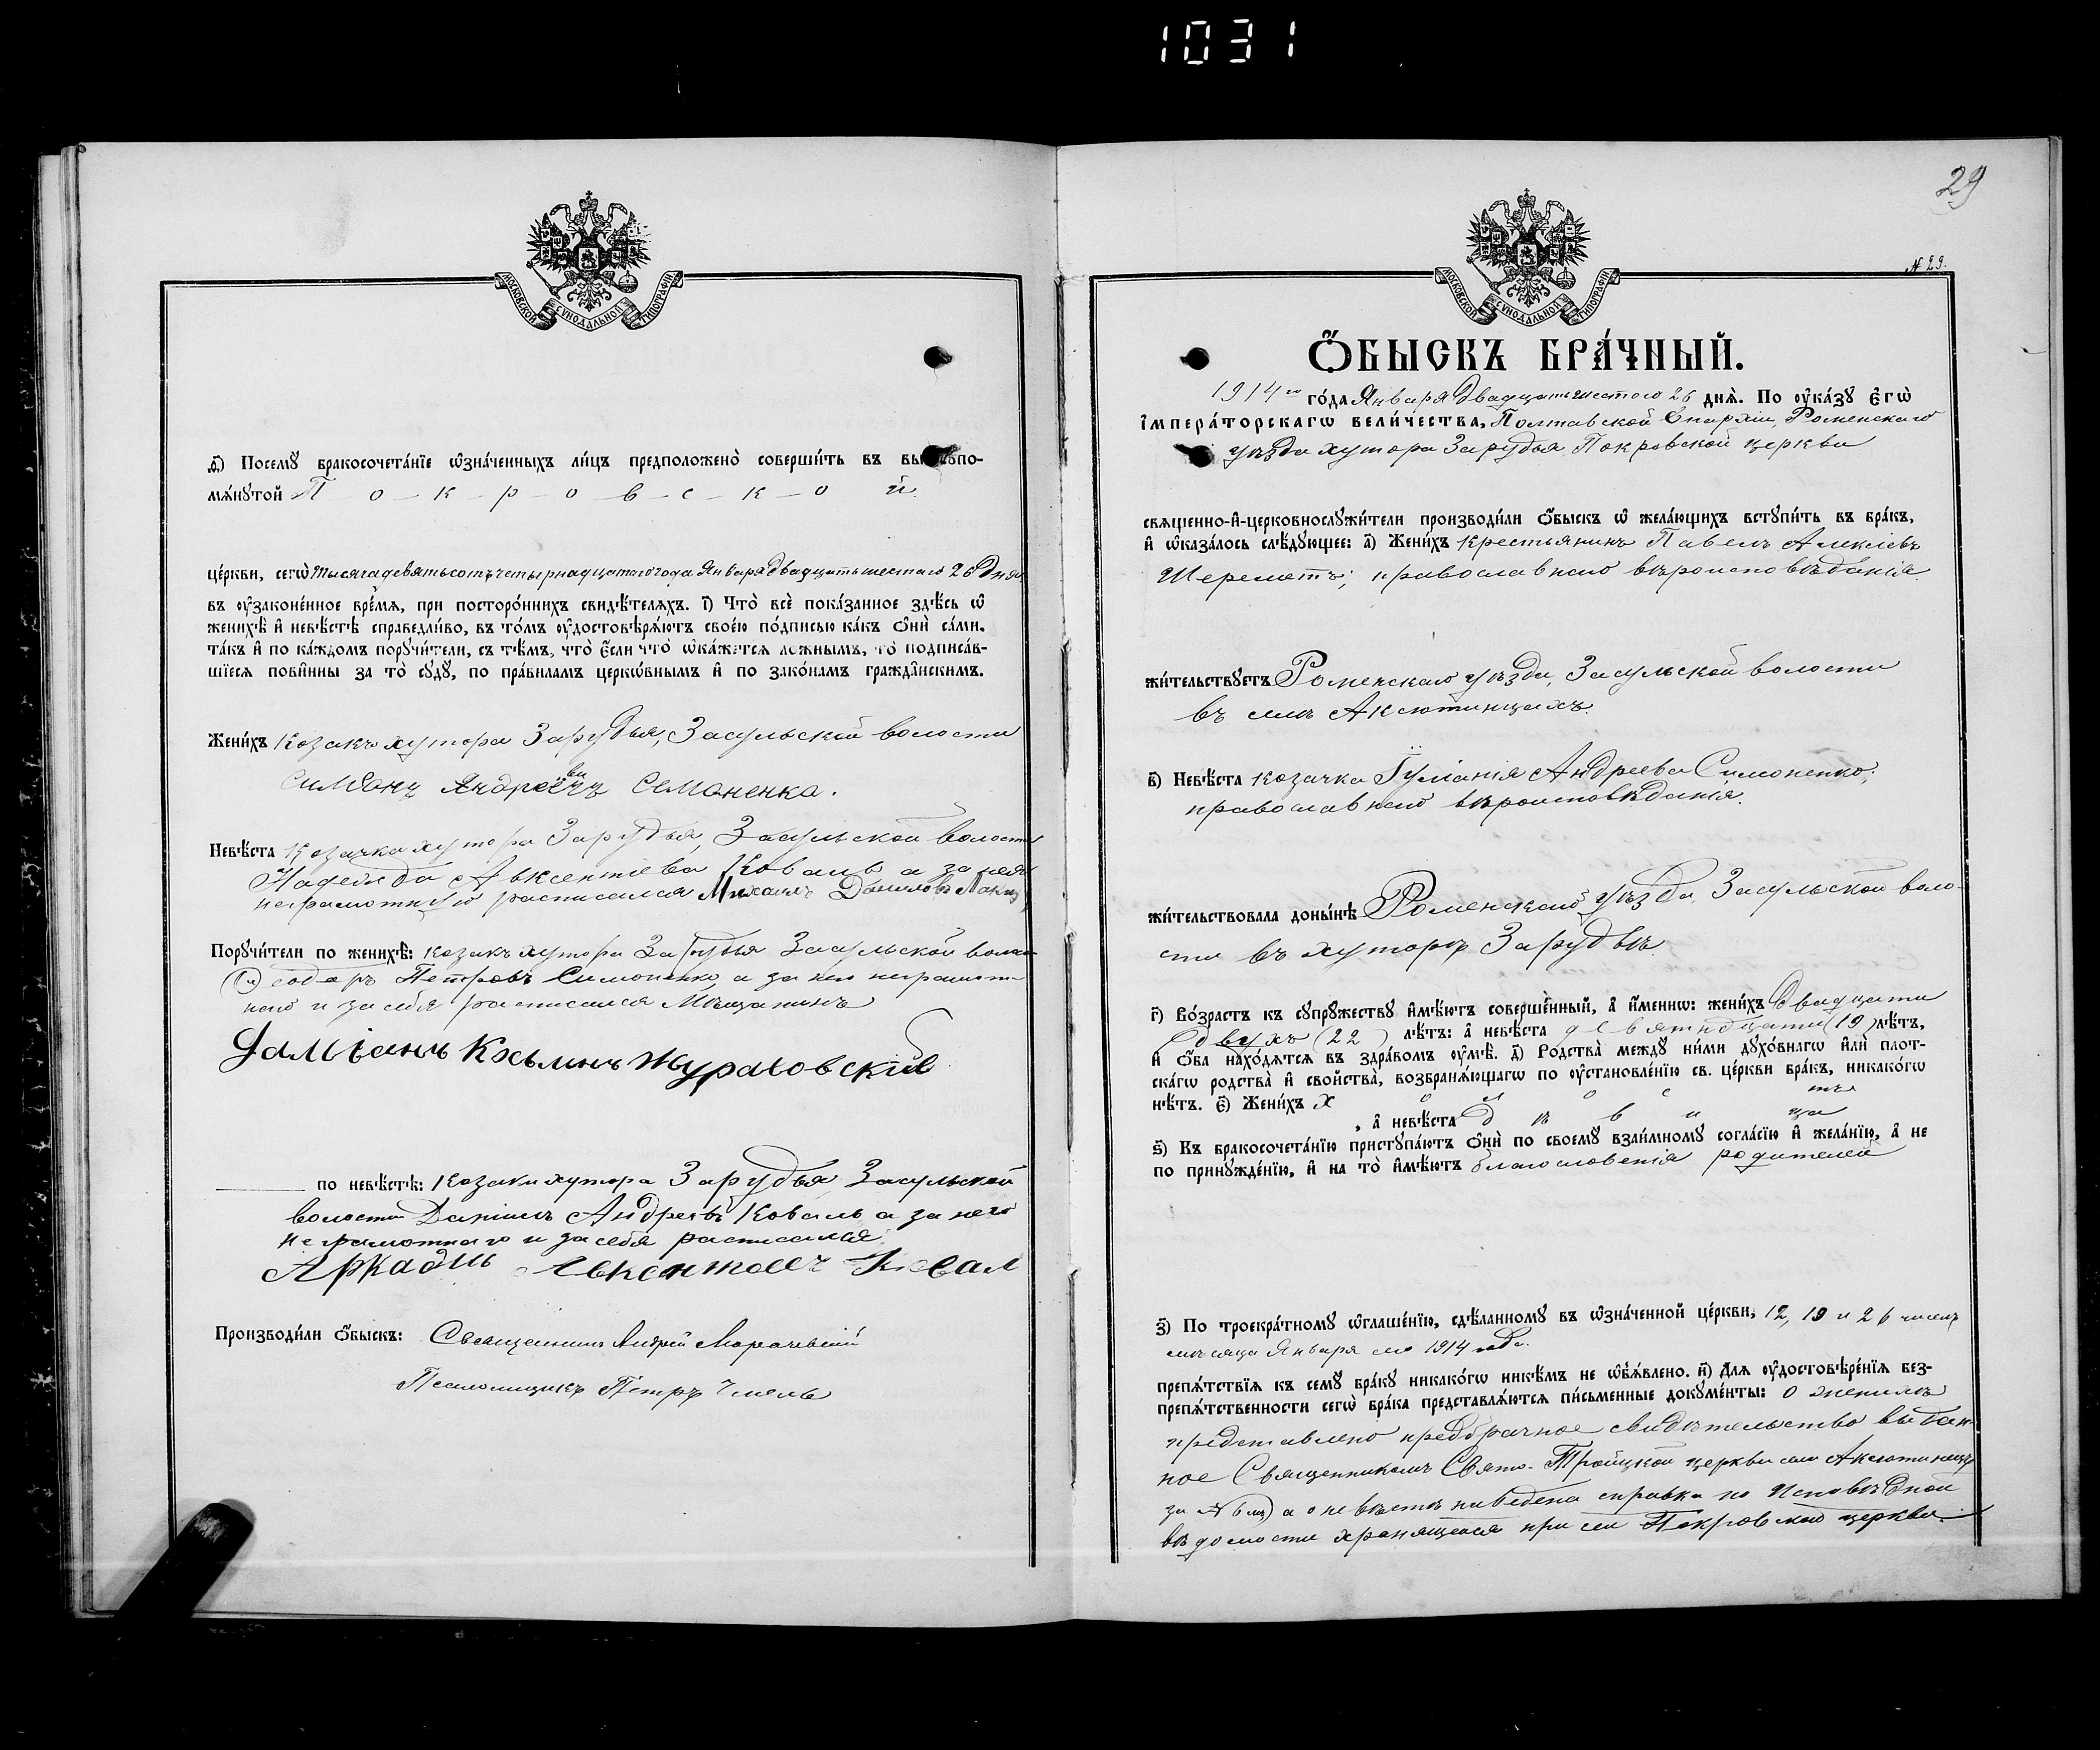 1031
МОСКОВСКОЙ СѴНОДАЛЬНОЙ ТИПОГРАФІИ
ѳ҃) Посемꙋ̀ бракосочета́нїе ѡ҆зна́ченныхъ ли́цъ предположено̀ соверши́ть въ вышепо-
мѧ́нꙋтой П о – к – р – о – в – с – к – о й
це́ркви, сегѡ̀ тысяча девятьсотъ четырнадцатого года Января двадцать шестого 26 дня
въ ᲂу҆зако́ненное вре́мѧ, при посторо́ннихъ свидѣ́телѧхъ. і҃) Что̀ всѐ пока́занное здѣ́сь ѡ҆
женихѣ̀ и҆ невѣ́стѣ справедли́во, въ то́мъ ᲂу҆достовѣрѧ́ютъ свое́ю по́дписью ка́къ ѻ҆нѝ са́ми.
та́къ и҆ по ка́ждомъ порꙋчи́тели, съ тѣ́мъ, что̀ є҆́сли что̀ ѡ҆ка́жетсѧ ло́жнымъ, то̀ подписа́в-
шїесѧ пови́нны за то̀ сꙋдꙋ̀, по пра́виламъ церкѡ́внымъ и҆ по зако́намъ гражда̂нскимъ.
Жени́хъ Козакъ хутора Зарудья, Засульской волости
Симеонъ Андреевъ Семоненко.
Невѣ́ста Козачка хутора Зарудья, Засульской волости
Надежда Авксентіева Коваль а за нея
неграмотную расписался Михаилъ Даниловъ
Порꙋчи́тели по женихѣ̀: козакъ хутора Зарудья Засульской волос
Ѳеодоръ Петровъ Симоненко, а за него неграмот-
наго и за себя расписался Мѣщанинъ
Даміанъ Козьминъ Жураховскій
по невѣ́стѣ: Козаки хутора Зарудья, Засульской
волости Даніилъ Андреевъ Коваль а за него
неграмотнаго и за себя расписался
Аркадій Авксентіевъ Ковал
Производи́ли ѻ҆́быскъ: Священникъ Андрей Марачевскій
Псаломщикъ Петръ Чмель
29
№ 29.
МОСКОВСКОЙ СѴНОДАЛЬНОЙ ТИПОГРАФІИ
Ѻ҆́БЫСКЪ БРА́ЧНЫЙ.
1914 го го́да Января двадцать шестого 26 днѧ̀. По ᲂу҆ка́зꙋ Є҆гѡ̀
І҆мпера́торскагѡ вели́чества, Полтавской Епархіи, Роменскаго
уѣзда хутора Зарудья Покровской церкви
свѧще́нно-и҆-церковнослꙋжи́тели производи́ли ѻ҆́быскъ ѡ҆ жела́ющихъ встꙋпи́ть въ бра́къ,
и҆ ѡ҆каза́лось слѣ́дꙋющее: а҃) Жени́хъ Крестьянинъ Павелъ Алексіевъ
Шереметъ, православнаго вѣроисповѣданія.
жи́тельствꙋетъ Роменскаго уѣзда, Засульской волости
въ селѣ Аксютинцахъ.
в҃) Невѣ́ста козачка Іуліанія Андреева Симоненко,
православнаго вѣроисповѣданія.
жи́тельствовала доны́нѣ Роменскаго уѣзда, Засульской воло-
сти въ хуторѣ Зарудьѣ.
г҃) Во́зрастъ къ сꙋпрꙋ́жествꙋ и҆мѣ́ютъ соверше́нный, а҆ и҆́меннѡ: жени́хъ двадцати
двухъ (22) лѣ́тъ: а҆ невѣ́ста девятнадцати (19) лѣ́тъ,
и҆ ѻ҆́ба нахо́дѧтсѧ въ здра́вомъ ᲂу҆мѣ̀. д҃) Родства̀ междꙋ̀ ни́ми дꙋхо́внагѡ и҆лѝ плот-
ска́гѡ родства̀ и҆ сво́йства, возбранѧ́ющагѡ по ᲂу҆становле́нїю св. це́ркви бра́къ, никако́гѡ
нѣ́тъ. є҃) Жени́хъ х о л о с тъ
, а҆ невѣ́ста д ѣ в и ца
ѕ҃) Къ бракосочета́нїю пристꙋпа́ютъ ѻ҆нѝ по своемꙋ̀ взаи́мномꙋ согла́сїю и҆ жела́нїю, а҆ не
по принꙋжде́нїю, и҆ на то̀ и҆мѣ́ютъ благословенія родителей
з҃) По троекра́тномꙋ ѡ҆глаше́нїю, сдѣ́ланномꙋ въ ѡ҆зна́ченной це́ркви, 12, 19 и 26 чиселъ
мѣсяца Января сего 1914 года.
препѧ́тствїѧ къ семꙋ̀ бра́кꙋ никако́гѡ никѣ́мъ не ѡ҆б̾ѧ́влено. и҃) Длѧ ᲂу҆достовѣре́нїѧ без-
препѧ́тственности сегѡ̀ бра́ка представлѧ́ютсѧ пи́сьменные докꙋме́нты: о женихѣ
представлено предбрачное свидѣтельство выдан-
ное Священникомъ Свято-Троицкой церкви села Аксютинецъ
за № 6 а о невѣстѣ наведена справка по Исповѣдной
вѣдомости хранящейся при сей Покровской церкви.